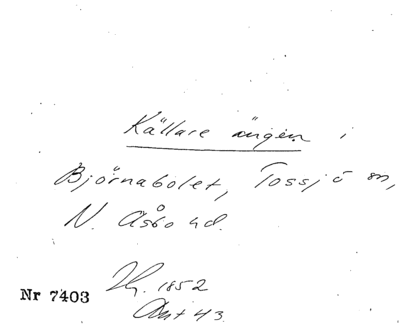 Källare ängen i
Björnabolet, Tossjö sn,
N. Åsbo hd.
1852
Nr 7403
Ant 43